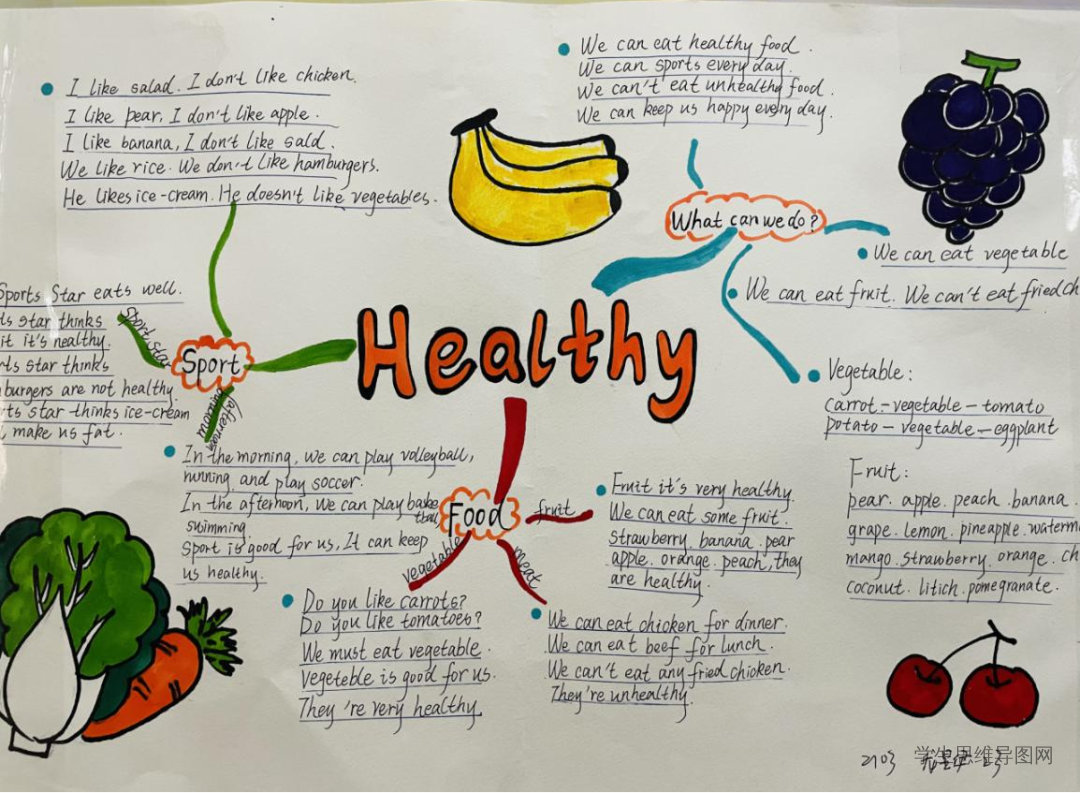 I like salad. I don't like chicken.
I like pear. I don't like apple.
I like banana, I don't like sald.
We like rice. We don't like hamburgers.
He likes ice-cream. He doesn't like vegetables.
We can eat healthy food.
We can sports every day.
We can't eat unhealthy food.
We can keep us happy every day.
What can we do?
We can eat vegetable
We can eat fruit. We can't eat fried ch
Vegetable:
carrot-vegetable-tomato
potato-vegetable-eggplant
Fruit:
pear. apple. peach. banana.
grape. lemon. pineapple. waterm
mango. strawberry. orange. ch
coconut. litich. pomegranate.
Healthy
Sport
Sport star
Sports Star eats well.
ts star thinks
it it's healthy.
rts star thinks
burgers are not healthy.
rts star thinks ice-cream
make us fat.
In the morning, we can play volleyball,
running and play soccer.
In the afternoon, we can play baske
tball
swimming
Sport is good for us, It can keep
us healthy.
Food
fruit
Fruit it's very healthy.
We can eat some fruit.
strawberry. banana. pear
apple. orange. peach, they
are healthy.
vegetable
Do you like carrots?
Do you like tomatoes?
We must eat vegetable.
Vegeteble is good for us.
They're very healthy.
meat
We can eat chicken for dinner.
We can eat beef for lunch.
We can't eat any fried chicken.
They're unhealthy.
学生思维导图网